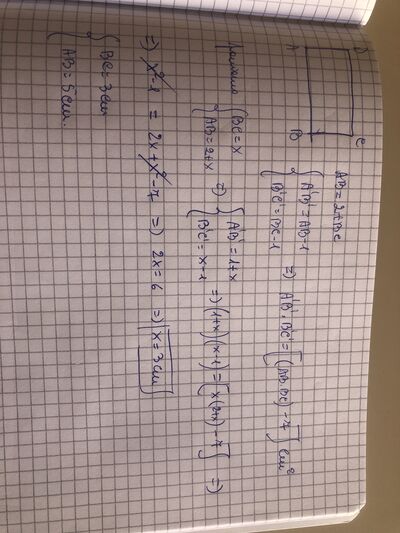 D C
A B
AB = 2+BC
{ A'B' = AB-1
{ B'C' = BC-1 => A'B'.B'C' = [(AB.BC) - 7] cm²
{ BC = x
{ AB = 2+x => { A'B' = 1+x
{ B'C' = x-1 => (1+x)(x-1) = [x(2+x) - 7] =>
=> x²-1 = 2x+x²-7 => 2x = 6 => x = 3cm
{ BC = 3cm
{ AB = 5cm.